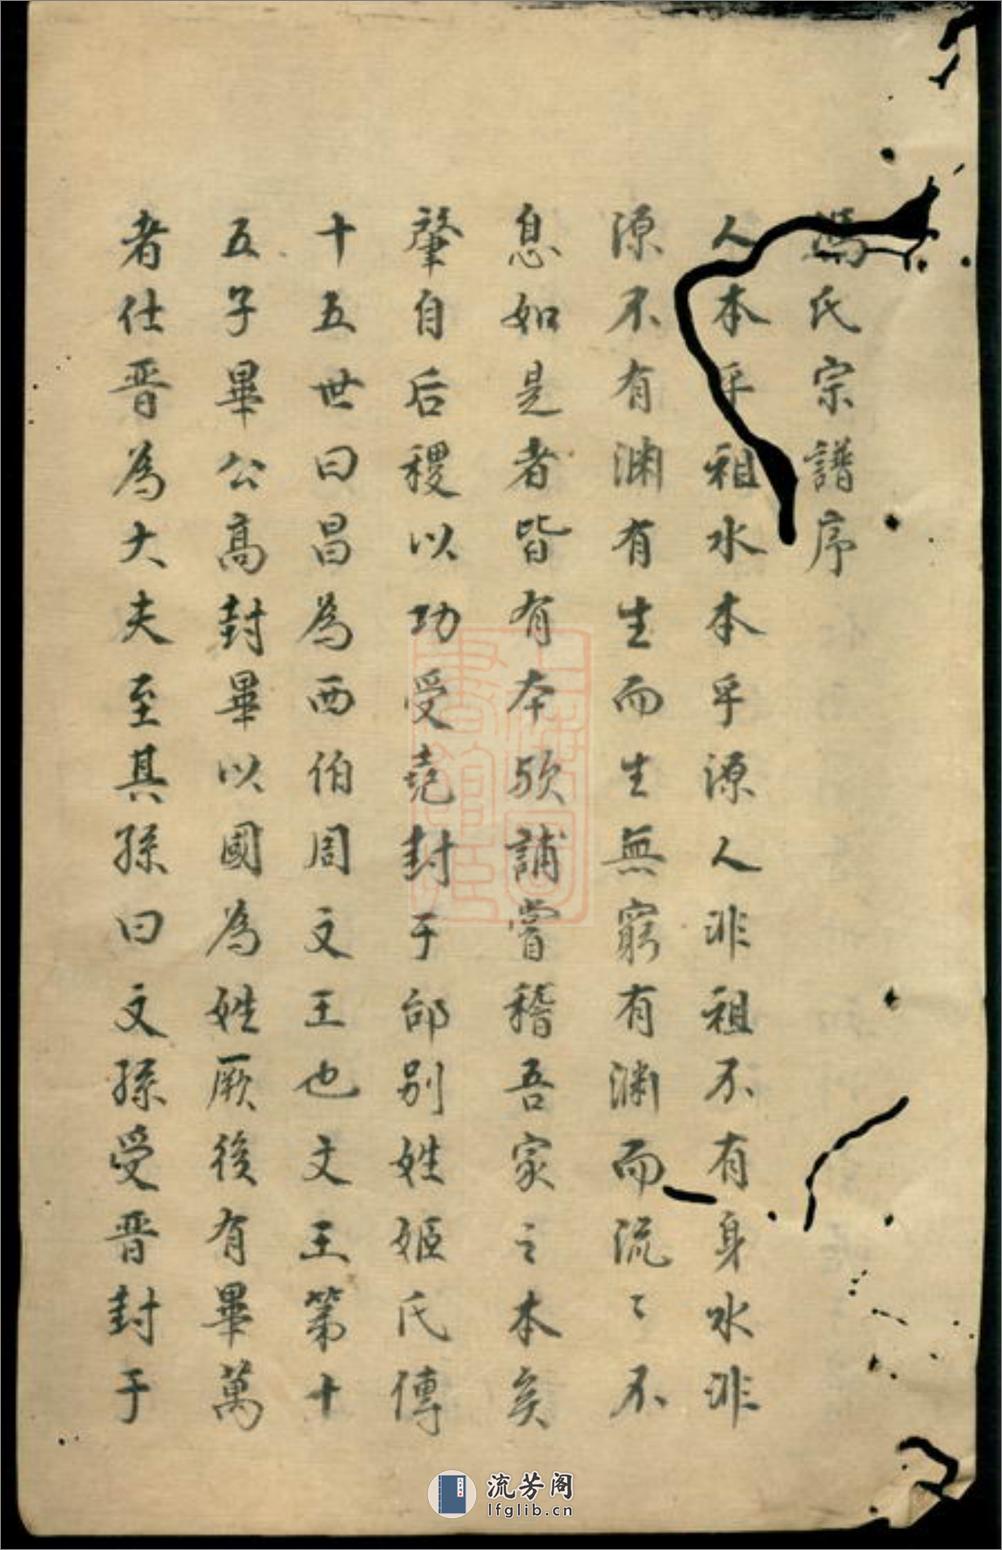 馮氏宗譜序
人本乎祖水本乎源人非祖不有身水非
源不有渊有生而生無窮有渊而流〻不
息如是者皆有本欤誦嘗稽吾家之本矣
肇自后稷以功受堯封于邰别姓姬氏傳
十五世曰昌為西伯周文王也文王第十
五子畢公高封畢以國為姓厥後有畢萬
者仕晋為大夫至其孫曰文孫受晋封于
流芳阁
lfglib.cn